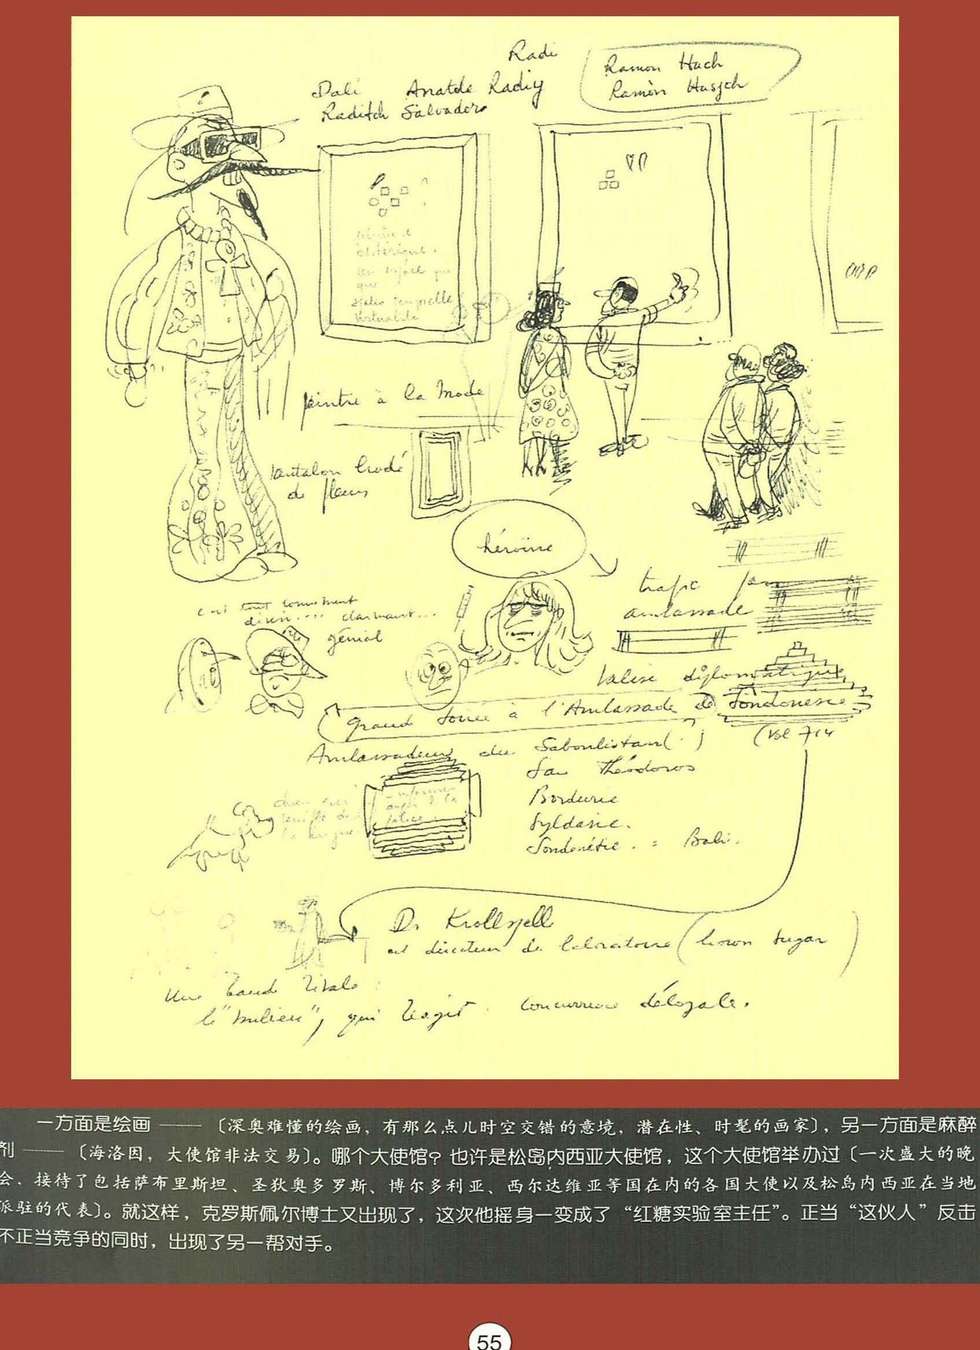 Radi
Dali Anatole Radiy
Raditch Salvador
Ramon Hach
Ramòn Haszch
peintre à la mode
pantalon brodé
de fleurs
héroïne
trafic
ambassade
génial
Valise diplomatique
grand soirée à l'Ambassade de Sondonésie
(Vol 714
Ambassadeurs du Saboulistan (?)
San Théodoros
Bordurie
Syldavie.
Sondonésie. = Bali.
Dr Krollspell
est directeur de laboratoire (brown sugar)
Une bande rivale :
le "milieu", qui réagit. concurrence déloyale.
一方面是绘画 —— 〔深奥难懂的绘画，有那么点儿时空交错的意境，潜在性、时髦的画家〕，另一方面是麻醉
剂 —— 〔海洛因，大使馆非法交易〕。哪个大使馆？也许是松岛内西亚大使馆，这个大使馆举办过〔一次盛大的晚
会，接待了包括萨布里斯坦、圣狄奥多罗斯、博尔多利亚、西尔达维亚等国在内的各国大使以及松岛内西亚在当地
派驻的代表〕。就这样，克罗斯佩尔博士又出现了，这次他摇身一变成了“红糖实验室主任”。正当“这伙人”反击
不正当竞争的同时，出现了另一帮对手。
55